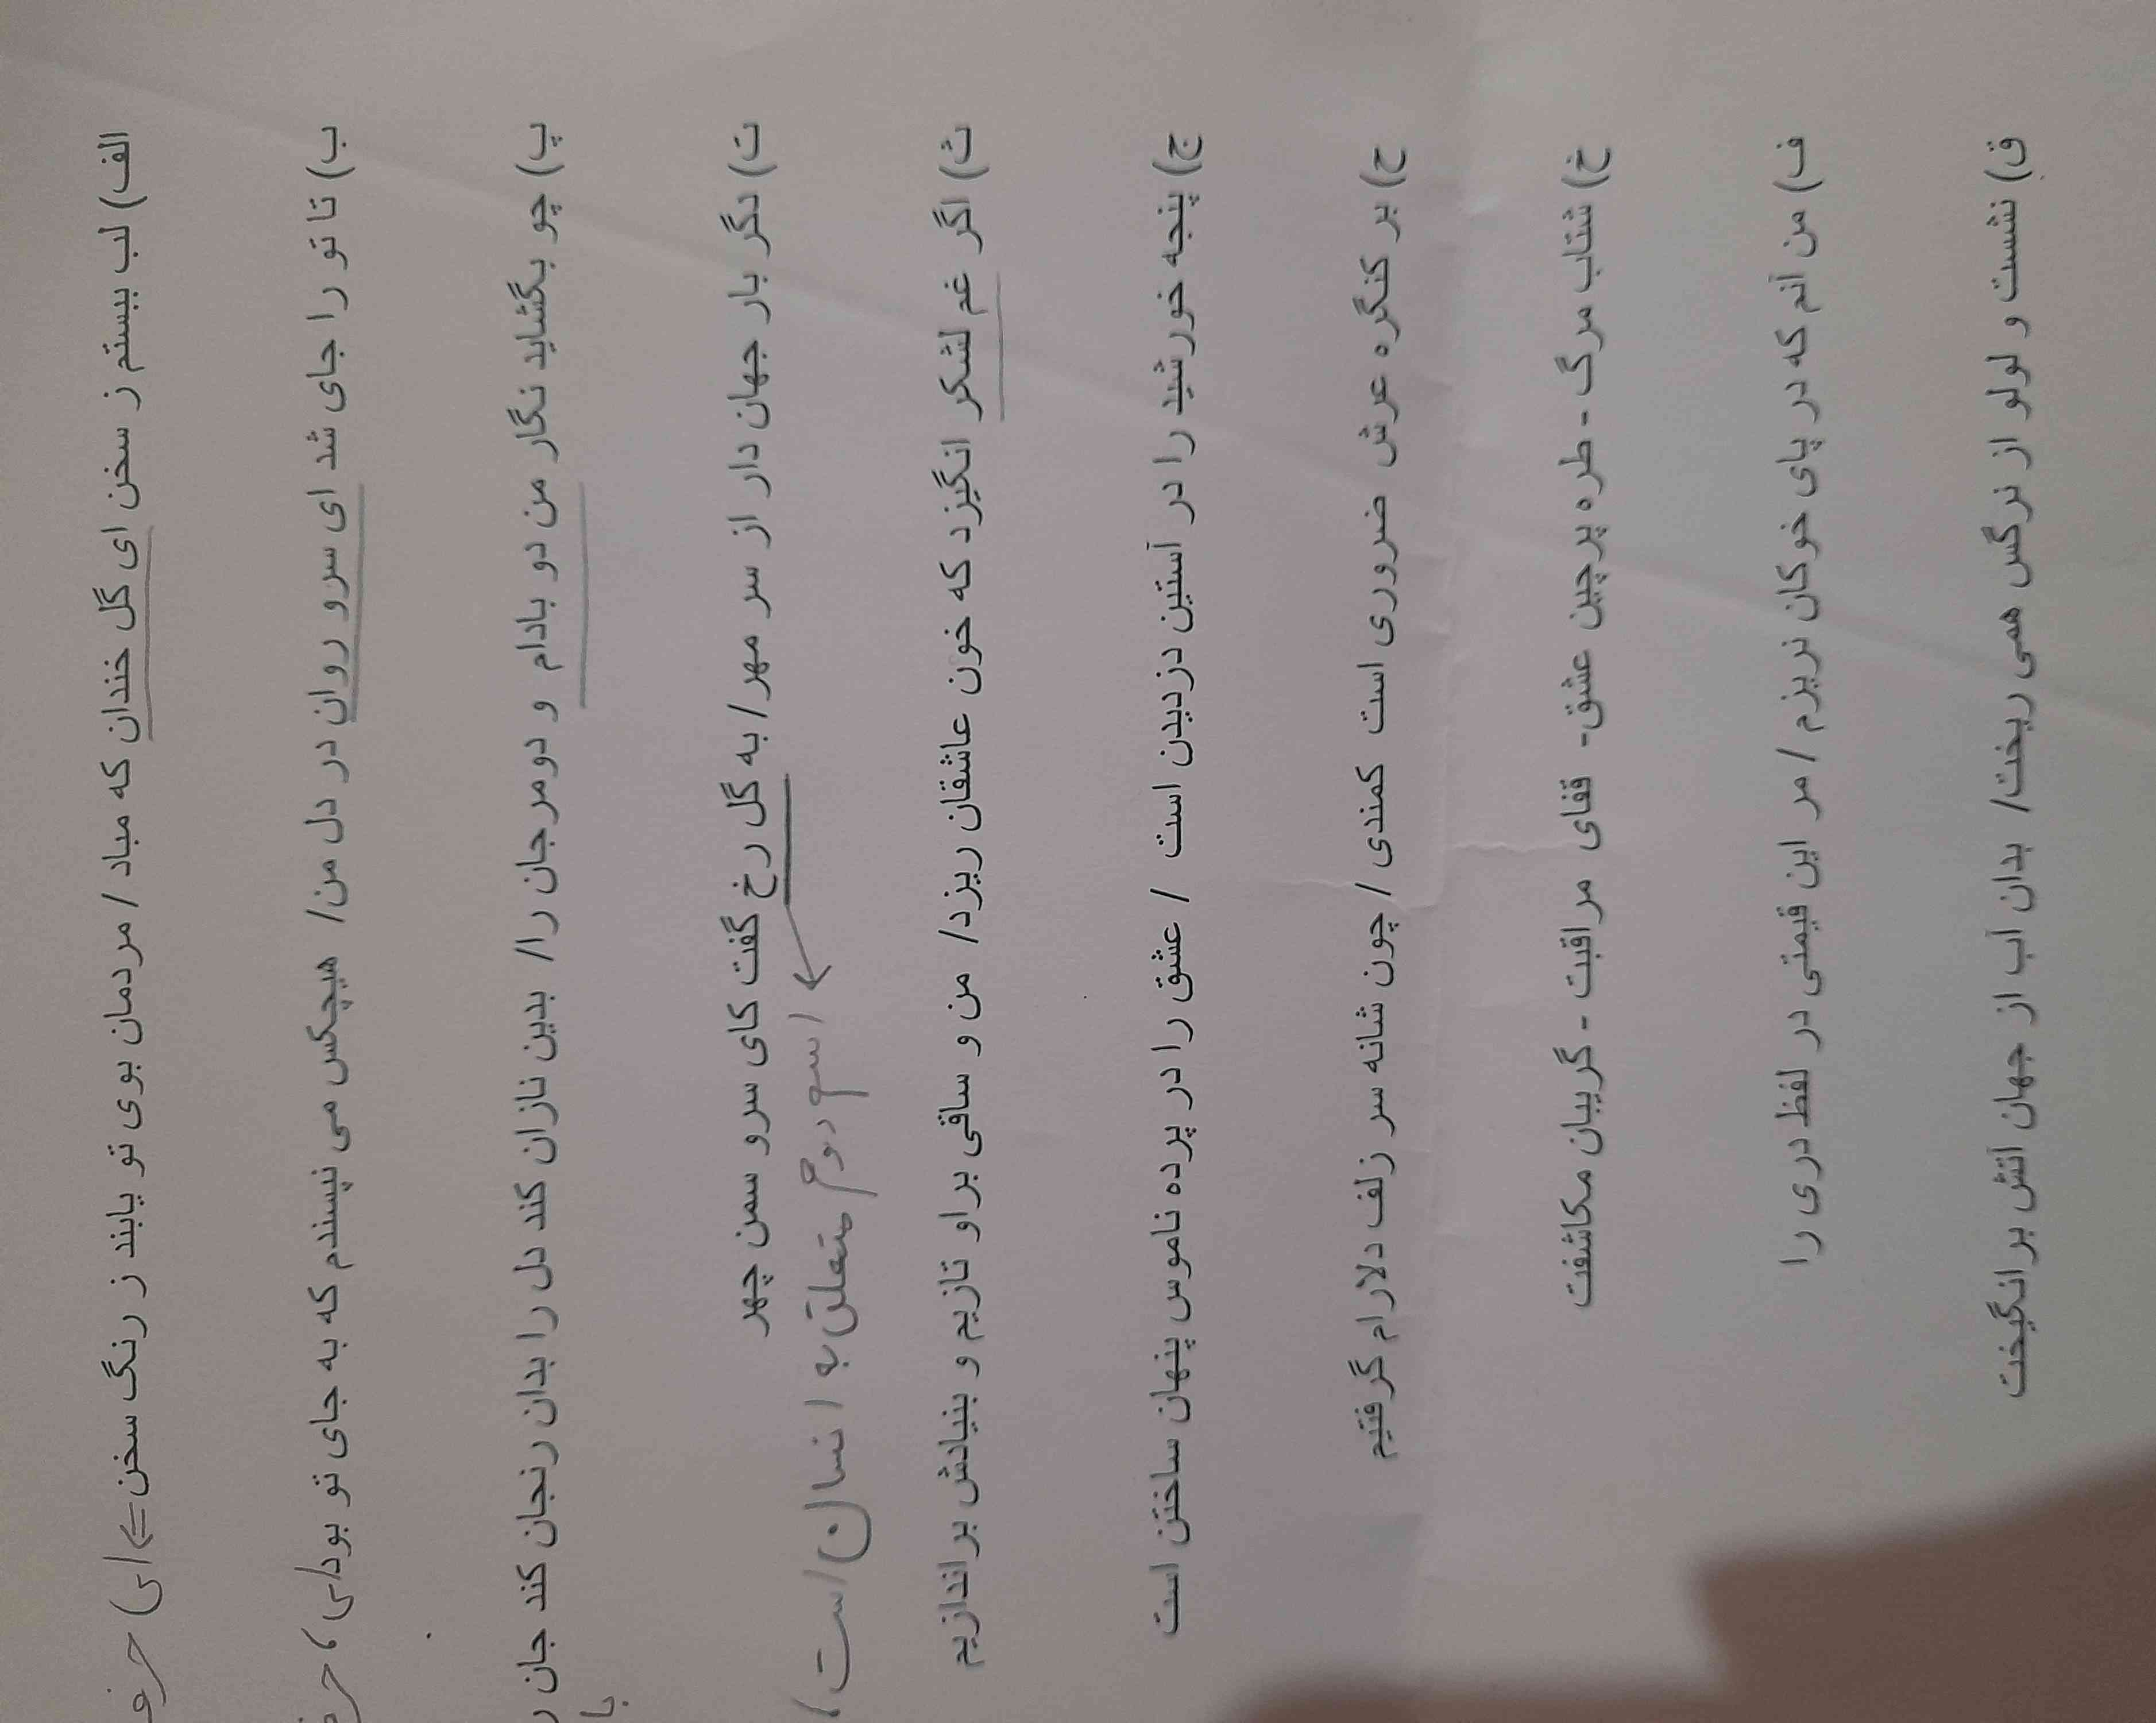 الف) لب ببستم ز سخن ای گل خندان که مباد / مردمان بوی تو یابند ز رنگ سخن => ای) حرف
ب) تا تو را جای شد ای سرو روان در دل من/ هیچکس می نپسندم که به جای تو بود ای،
پ) چو بگشاید نگار من دو بادام و دومرجان را/ بدین نازان کند دل را بدان رنجان کند جان ر
با
ت) دگر بار جهان دار از سر مهر/ به گل رخ گفت کای سرو سمن چهر
اسم دوم متعلق به انسان است،
ث) اگر غم لشکر انگیزد که خون عاشقان ریزد/ من و ساقی براو تازیم و بنیادش براندازیم
ج) پنجه خورشید را در آستین دزدیدن است / عشق را در پرده ناموس پنهان ساختن است
ح) بر کنگره عرش ضروری است کمندی / چون شانه سر زلف دلارام گرفتیم
خ) شتاب مرگ - طره پرچین عشق- قفای مراقبت - گریبان مکاشفت
ف) من آنم که در پای خوکان نریزم / مر این قیمتی در لفظ دری را
ق) نشست و لولو از نرگس همی ریخت/ بدان آب از جهان آتش برانگیخت